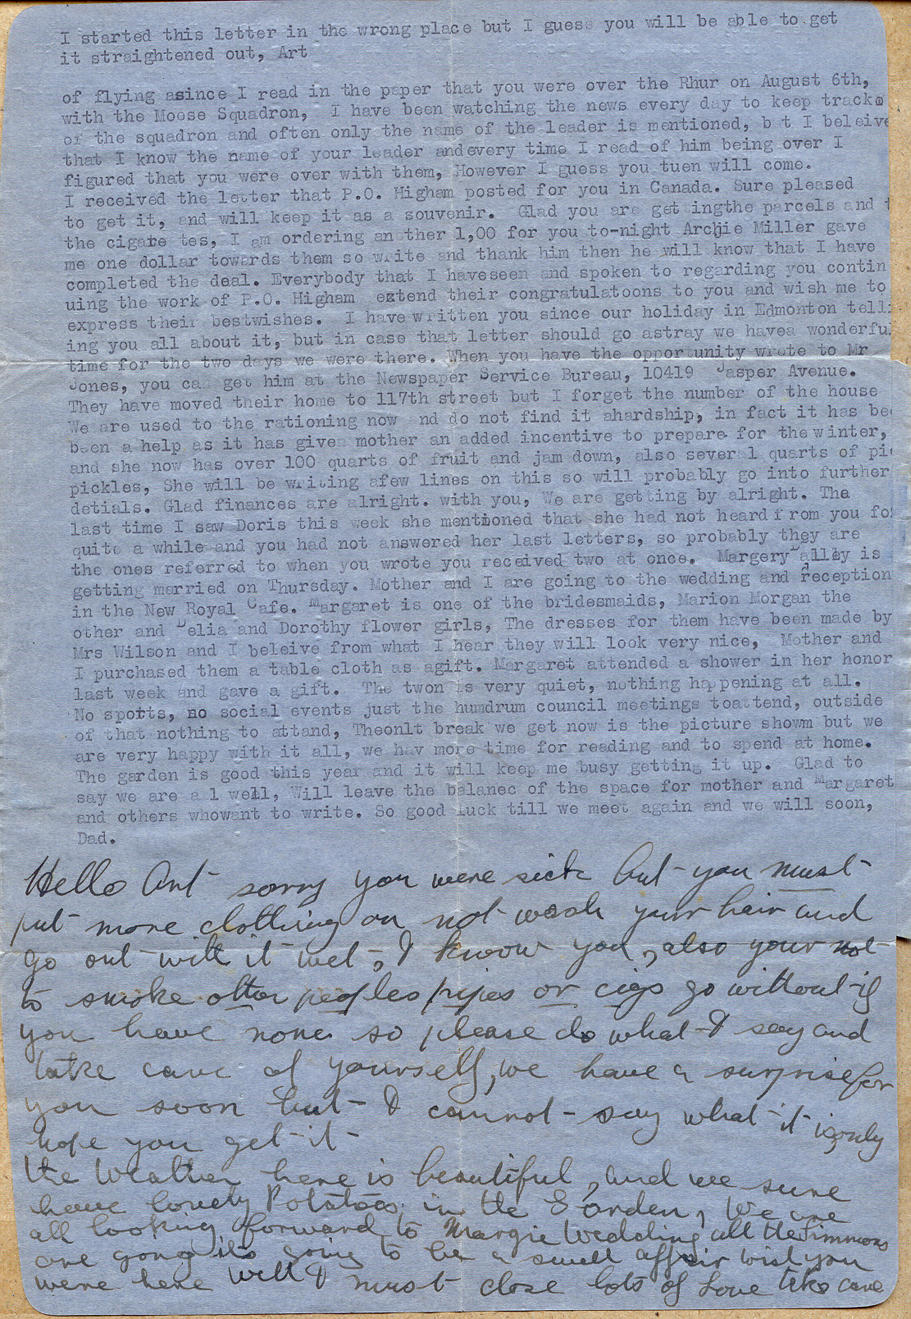 I started this letter in the wrong place but I guess you will be able to get
it straightened out, Art
of flying asince I read in the paper that you were over the Rhur on August 6th,
with the Moose Squadron, I have been watching the news every day to keep track
of the squadron and often only the name of the leader is mentioned, b t I beleive
that I know the name of your leader andevery time I read of him being over I
figured that you were over with them, However I guess you tuen will come.
I received the letter that P.O. Higham posted for you in Canada. Sure pleased
to get it, and will keep it as a souvenir. Glad you are get ingthe parcels and t
the cigare tes, I am ordering an ther 1,00 for you to-night Archie Miller gave
me one dollar towards them so write and thank him then he will know that I have
completed the deal. Everybody that I haveseen and spoken to regarding you contin
uing the work of P.O. Higham extend their congratulatoons to you and wish me to
express their bestwishes. I have written you since our holiday in Edmonton telli
ing you all about it, but in case that letter should go astray we havea wonderful
time for the two days we were there. When you have the opportunity wrote to Mr
Jones, you can get him at the Newspaper Service Bureau, 10419 Jasper Avenue.
They have moved their home to 117th street but I forget the number of the house
We are used to the rationing now nd do not find it ahardship, in fact it has bee
been a help as it has give mother an added incentive to prepare for thewinter,
and she now has over 100 quarts of fruit and jam down, also several quarts of pic
pickles, She will be writing afew lines on this so will probably go into further
detials. Glad finances are alright. with you, We are getting by alright. The
last time I saw Doris this week she mentioned that she had not heard from you for
quite a while and you had not answered her last letters, so probably they are
the ones referred to when you wrote you received two at once. Margery alley is
getting married on Thursday. Mother and I are going to the wedding and reception
in the New Royal Cafe. Margaret is one of the bridesmaids, Marion Morgan the
other and Delia and Dorothy flower girls, The dresses for them have been made by
Mrs Wilson and I beleive from what I hear they will look very nice, Mother and
I purchased them a table cloth as agift. Margaret attended a shower in her honor
last week and gave a gift. The twon is very quiet, nothing happening at all.
No spotts, no social events just the humdrum council meetings toattend, outside
of that nothing to attand, Theonlt break we get now is the picture showm but we
are very happy with it all, we hav more time for reading and to spend at home.
The garden is good this year and it will keep me busy getting it up. Glad to
say we are a l well, Will leave the balanec of the space for mother and Margaret
and others whowant to write. So good luck till we meet again and we will soon,
Dad.
Hello Art sorry you were sick but you must
put more clothing on not wash your hair and
go out with it wet, I know you, also your not
to smoke other peoples pipes or cigs go without if
you have none so please do what I say and
take care of yourself, we have a surprise for
you soon but I cannot say what it is only
hope you get it
the Weather here is beautiful, and we sure
have lovely Potatoes in the Garden, We are
all looking forward to Margie Wedding all the Simmons
are gong its going to be a swell affair wish you
were here Well I must close lots of Love take care